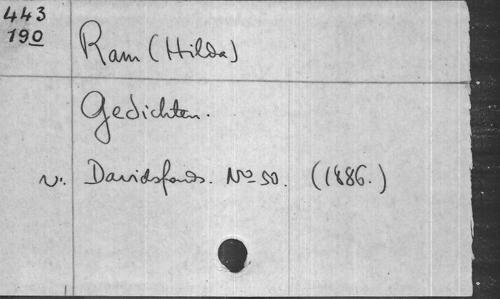 443
190
Ram (Hilda)
Gedichten.
v. Davidsfonds. No 50. (1886.)